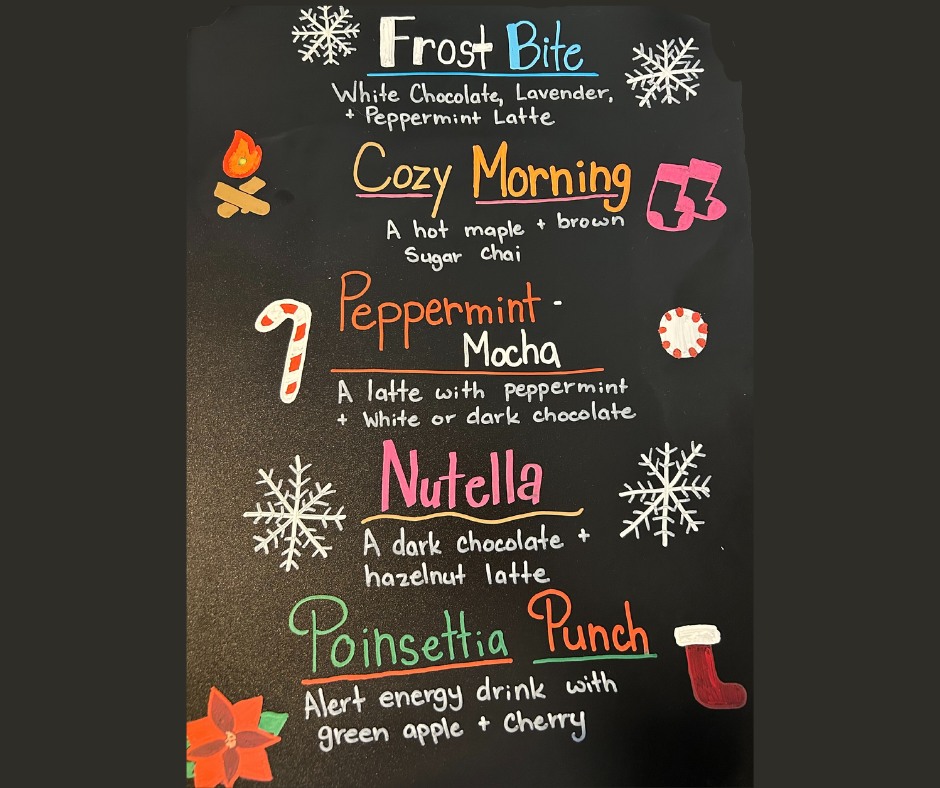 Frost Bite
White Chocolate, Lavender,
+ Peppermint Latte
Cozy Morning
A hot maple + brown
Sugar chai
Peppermint -
Mocha
A latte with peppermint
+ White or dark chocolate
Nutella
A dark chocolate +
hazelnut latte
Poinsettia Punch
Alert energy drink with
green apple + cherry